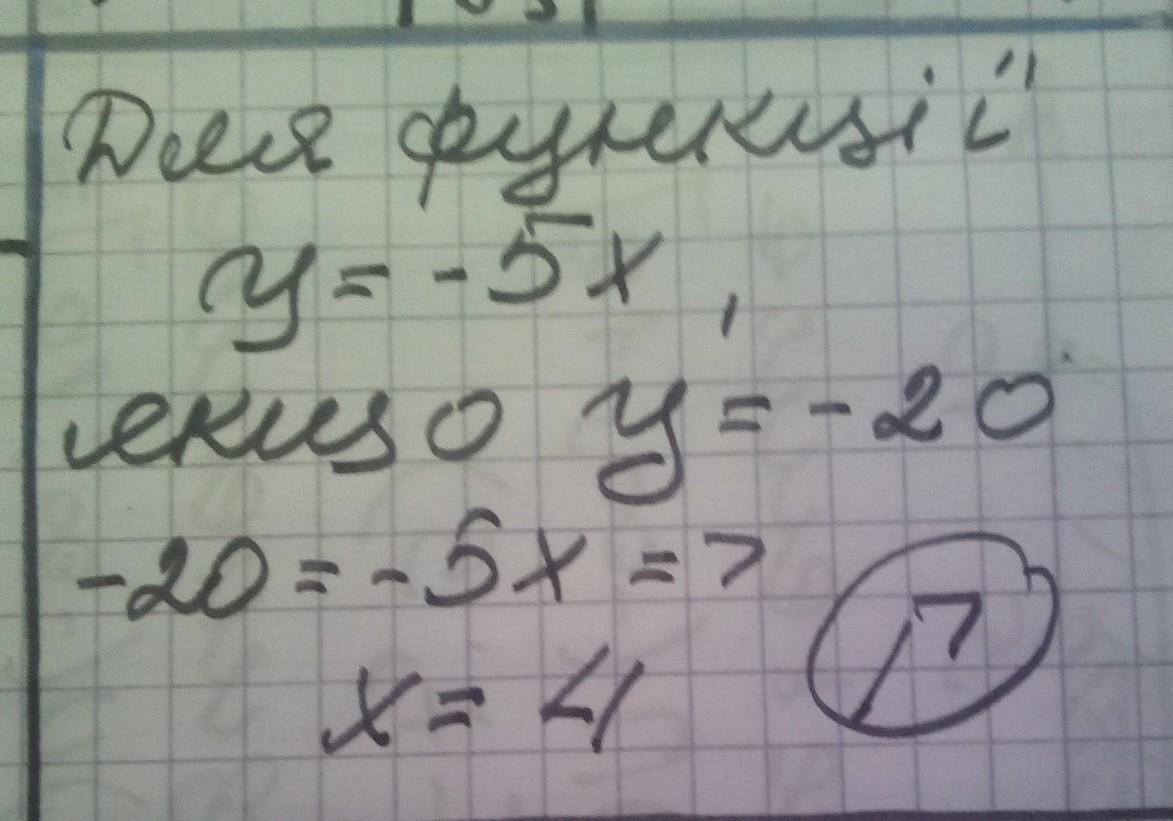 Для функції
y = -5x ,
якщо y = -20
-20 = -5x =>
x = 4
Г